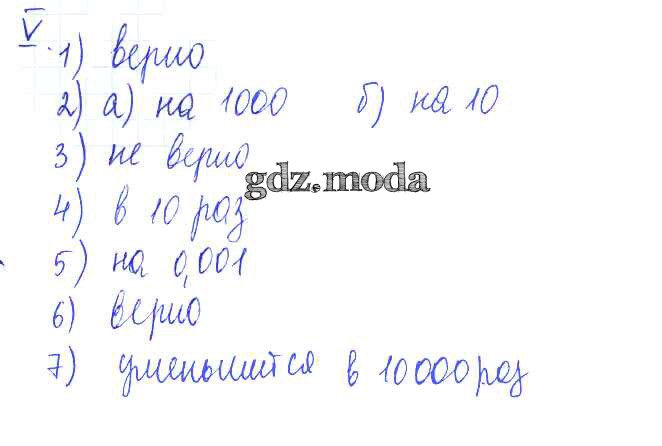 V. 1) верно
2) а) на 1000 б) на 10
3) не верно
gdz.moda
4) в 10 раз
5) на 0,001
6) верно
7) уменьшится в 10 000 раз